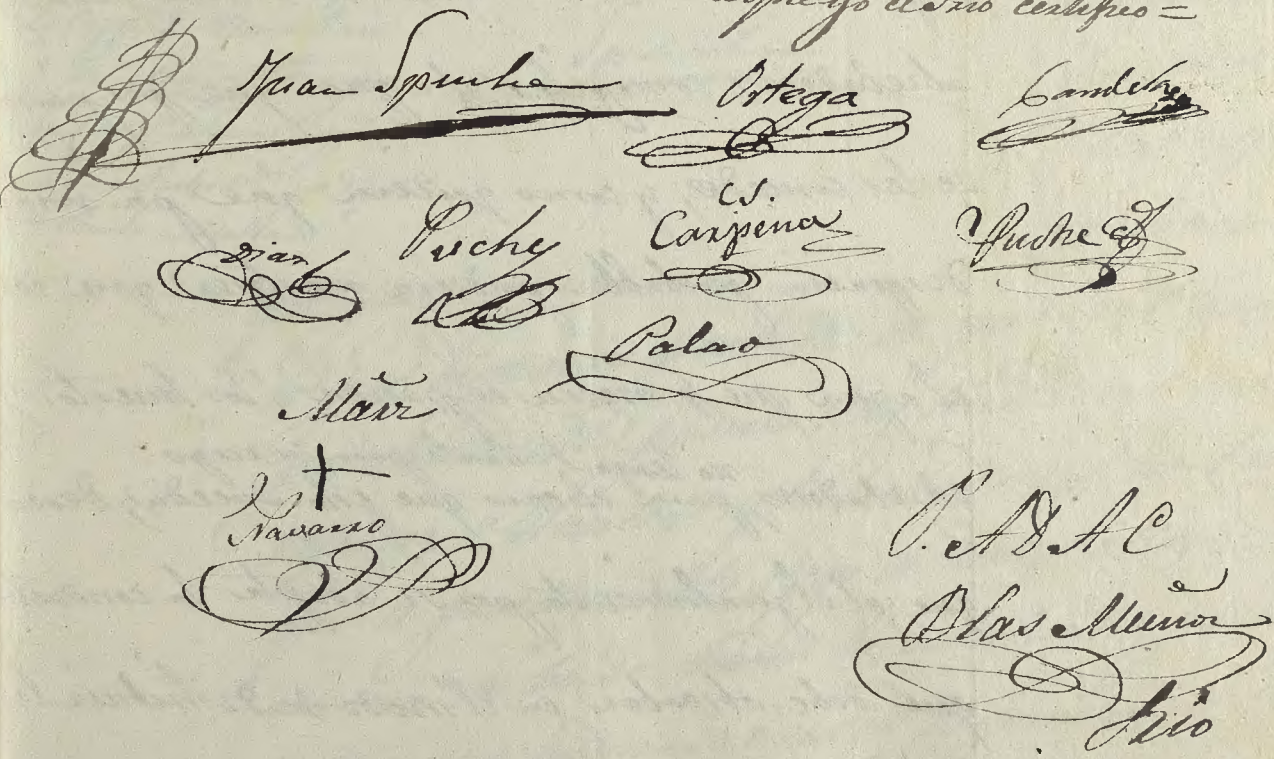 yo el srio certifico =
Juan Spuche Ortega
Diaz Puche C.S. Carpena Puche
Palao
Muñoz
Navarro
P. A D A C
Blas Muñoz
Srio